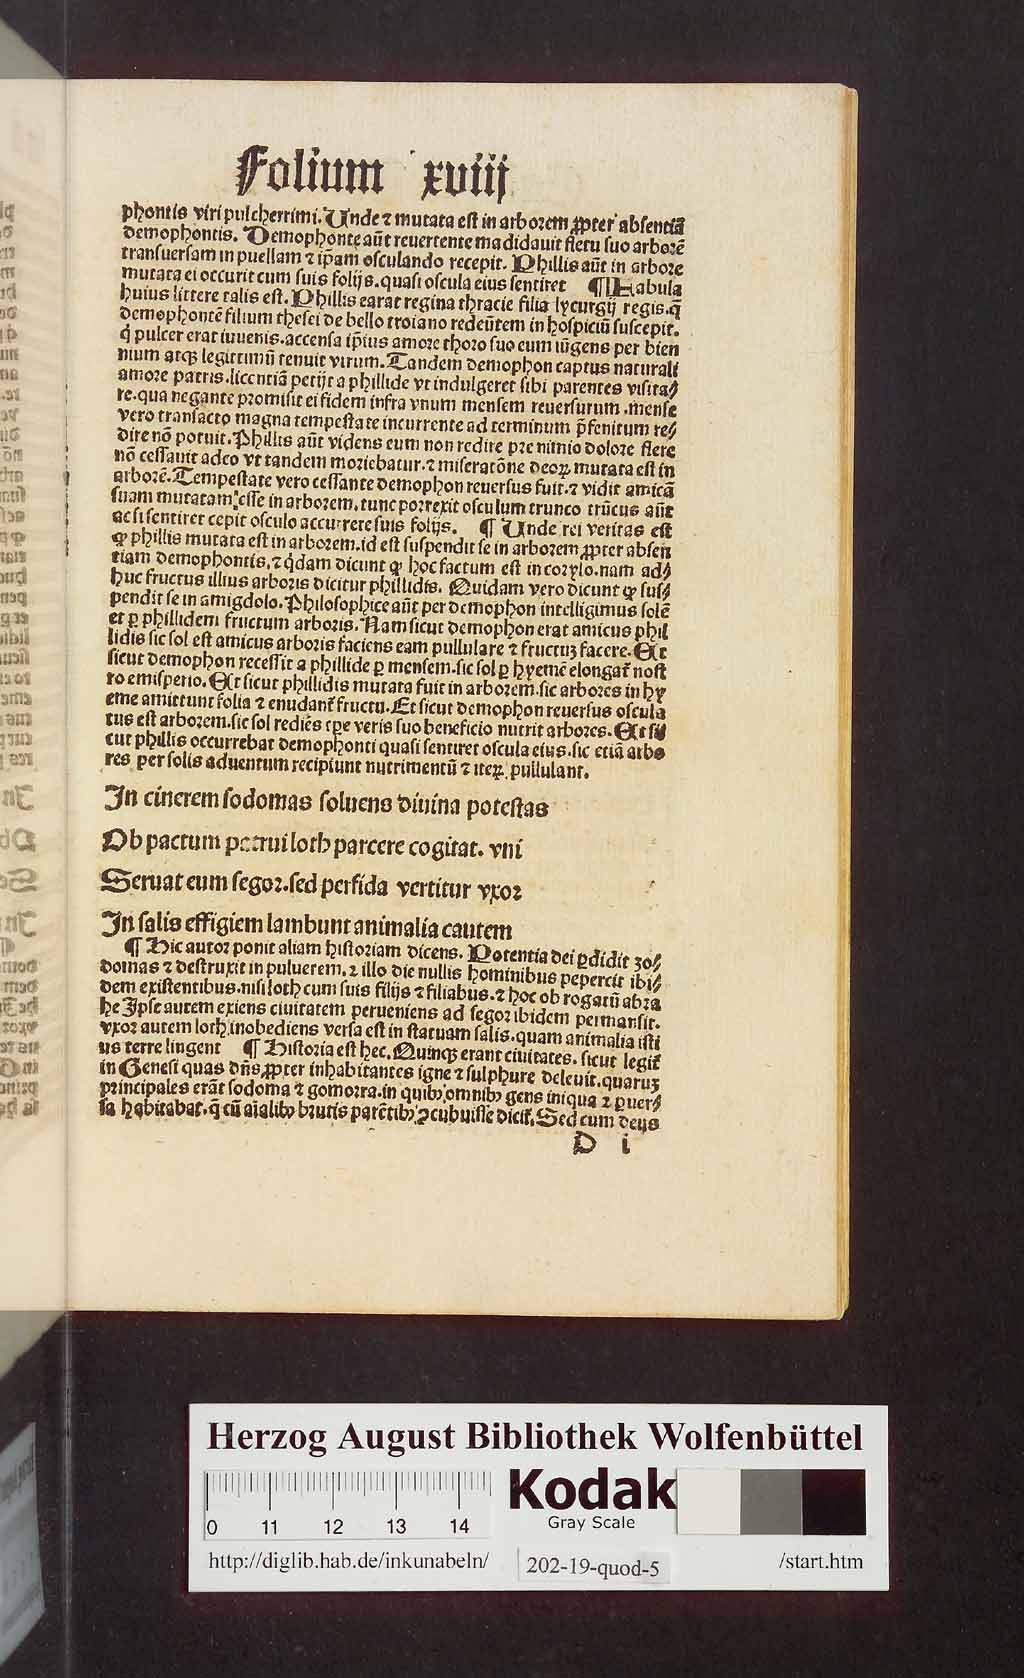 Folium xviij
phontis viri pulcherrimi. Unde ⁊ mutata est in arborem ꝓpter absentiā
demophontis. Demophonte aūt reuertente madidauit fletu suo arborē
transuersam in puellam ⁊ ip̄am osculando recepit. Phillis aūt in arbore
mutata ei occurit cum suis folijs. quasi oscula eius sentiret ¶ Fabula
huius littere talis est. Phillis earat regina thracie filia lycurgij regis. q̄
demophontē filium thesei de bello troiano redeūtem in hospiciū suscepit.
q̇ pulcer erat iuuenis. accensa ip̄ius amore thoro suo eum iūgens per bien
nium atqꝫ legittimū tenuit virum. Tandem demophon captus naturali
amore patris. licentiā petijt a phillide vt indulgeret sibi parentes visita⸗
re. qua negante promisit ei fidem infra vnum mensem reuersurum. mense
vero transacto magna tempestate incurrente ad terminum p̄fenitum re⸗
dire nō potuit. Phillis aūt videns eum non redire pre nimio dolore flere
nō cessauit adeo vt tandem moriebatur. ⁊ miseratōne deoꝝ mutata est in
arborē. Tempestate vero cessante demophon reuersus fuit. ⁊ vidit amicā
suam mutatam esse in arborem. tunc porrexit osculum trunco trūcus aūt
ac si sentiret cepit osculo accurrere suis folijs. ¶ Unde rei veritas est
ꝙ phillis mutata est in arborem. id est suspendit se in arborem ꝓpter absen
tiam demophontis. ⁊ q̇dam dicunt ꝙ hoc factum est in corylo. nam ad⸗
huc fructus illius arboris dicitur phillidis. Quidam vero dicunt ꝙ sus⸗
pendit se in amigdolo. Philosophice aūt per demophon intelligimus solē
et ꝑ phillidem fructum arboris. Nam sicut demophon erat amicus phil
lidis sic sol est amicus arboris faciens eam pullulare ⁊ fructuꝫ facere. Et
sicut demophon recessit a phillide ꝑ mensem. sic sol ꝑ hyemē elongat̄ nost
ro emisperio. Et sicut phillidis mutata fuit in arborem. sic arbores in hy
eme amittunt folia ⁊ enudant̄ fructu. Et sicut demophon reuersus oscula
tus est arborem. sic sol rediēs tp̄e veris suo beneficio nutrit arbores. Et si
cut phillis occurrebat demophonti quasi sentiret oscula eius. sic etiā arbo
res per solis aduentum recipiunt nutrimentū ⁊ iteꝝ pullulant.
In cinerem sodomas soluens diuina potestas
Ob pactum patrui loth parcere cogitat. vni
Seruat eum segor. sed perfida vertitur vxor
In salis effigiem lambunt animalia cautem
¶ Hic autor ponit aliam historiam dicens. Potentia dei ꝑdidit zo⸗
domas ⁊ destruxit in puluerem. ⁊ illo die nullis hominibus pepercit ibi⸗
dem existentibus. nisi loth cum suis filijs ⁊ filiabus. ⁊ hoc ob rogatū abra
he Ipse autem exiens ciuitatem perueniens ad segor ibidem permansit.
vxor autem loth inobediens versa est in statuam salis. quam animalia isti
us terre lingent ¶ Historia est hec. Quinqꝫ erant ciuitates. sicut legit̄
in Genesi quas dn̄s ꝓpter inhabitantes igne ⁊ sulphure deleuit. quaruꝫ
principales erāt sodoma ⁊ gomorra. in quibꝰ omnibꝰ gens iniqua ⁊ ꝑuer⸗
sa habitabat. q̄ cū aīalibꝰ brutis parētibꝰ ꝯcubuisse dicit̄. Sed cum deus
D i
Herzog August Bibliothek Wolfenbüttel
0 11 12 13 14
Kodak
Gray Scale
http://diglib.hab.de/inkunabeln/ 202-19-quod-5 /start.htm